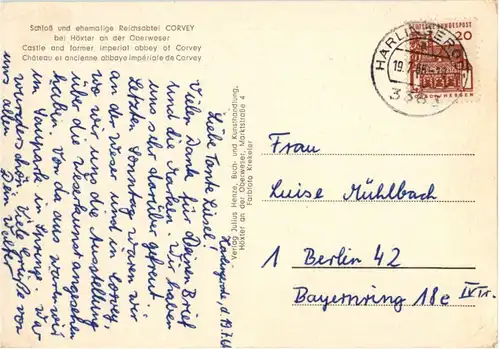 Schloß und ehemalige Reichsabtei CORVEY
bei Höxter an der Oberweser
Castle and former imperial abbey of Corvey
Château et ancienne abbaye impériale de Corvey
d. 19.7.
Liebe Tante Luise!
Vielen Dank für Deinen Brief
und die Marken. Wir haben
uns sehr darüber gefreut.
Letzten Sonntag waren wir
an der Weser und in Corvey,
wo wir uns die Ausstellung
über die Weserkunst angesehen
haben. Von da aus waren wir
im
wunderschön. Viele Grüße von
uns allen,
Dein Walter
Verlag Julius Henze, Buch- und Kunsthandlung,
Höxter an der Oberweser, Marktstraße 4
Farbfoto Krekeler
DEUTSCHE BUNDESPOST
20
19.7.65
Frau
Luise Mühlbach
1 Berlin 42
Bayernring 18c IV Tr.